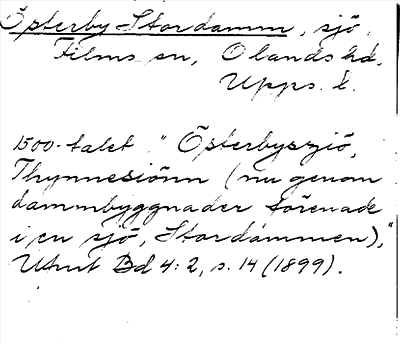 Österby-Stordamm, sjö,
Films sn, Olands hd,
Upps. l.
1500-talet. "Österbyszjö,
Thynnesiönn (nu genom
dammbyggnader förenade
i en sjö, Stordammen),"
Utnut Bd 4:2, s. 14 (1899).